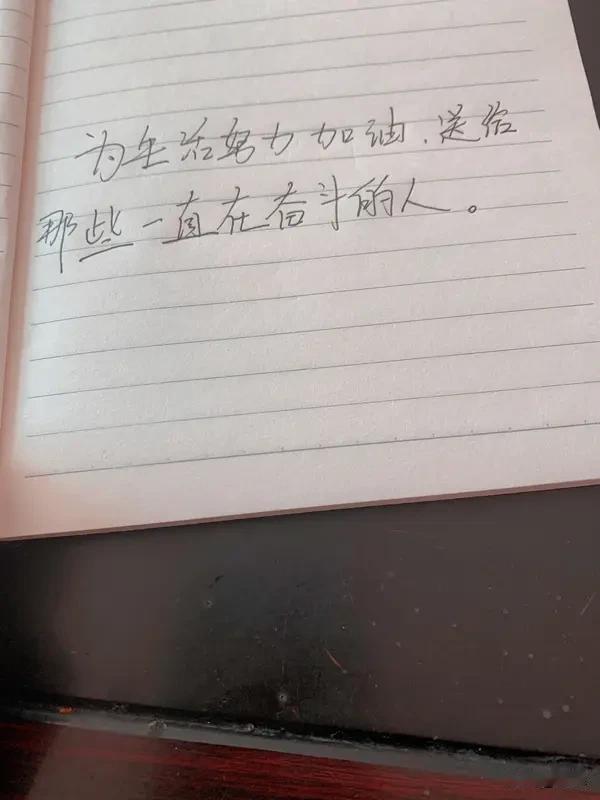 为生活努力加油.送给
那些一直在奋斗的人。